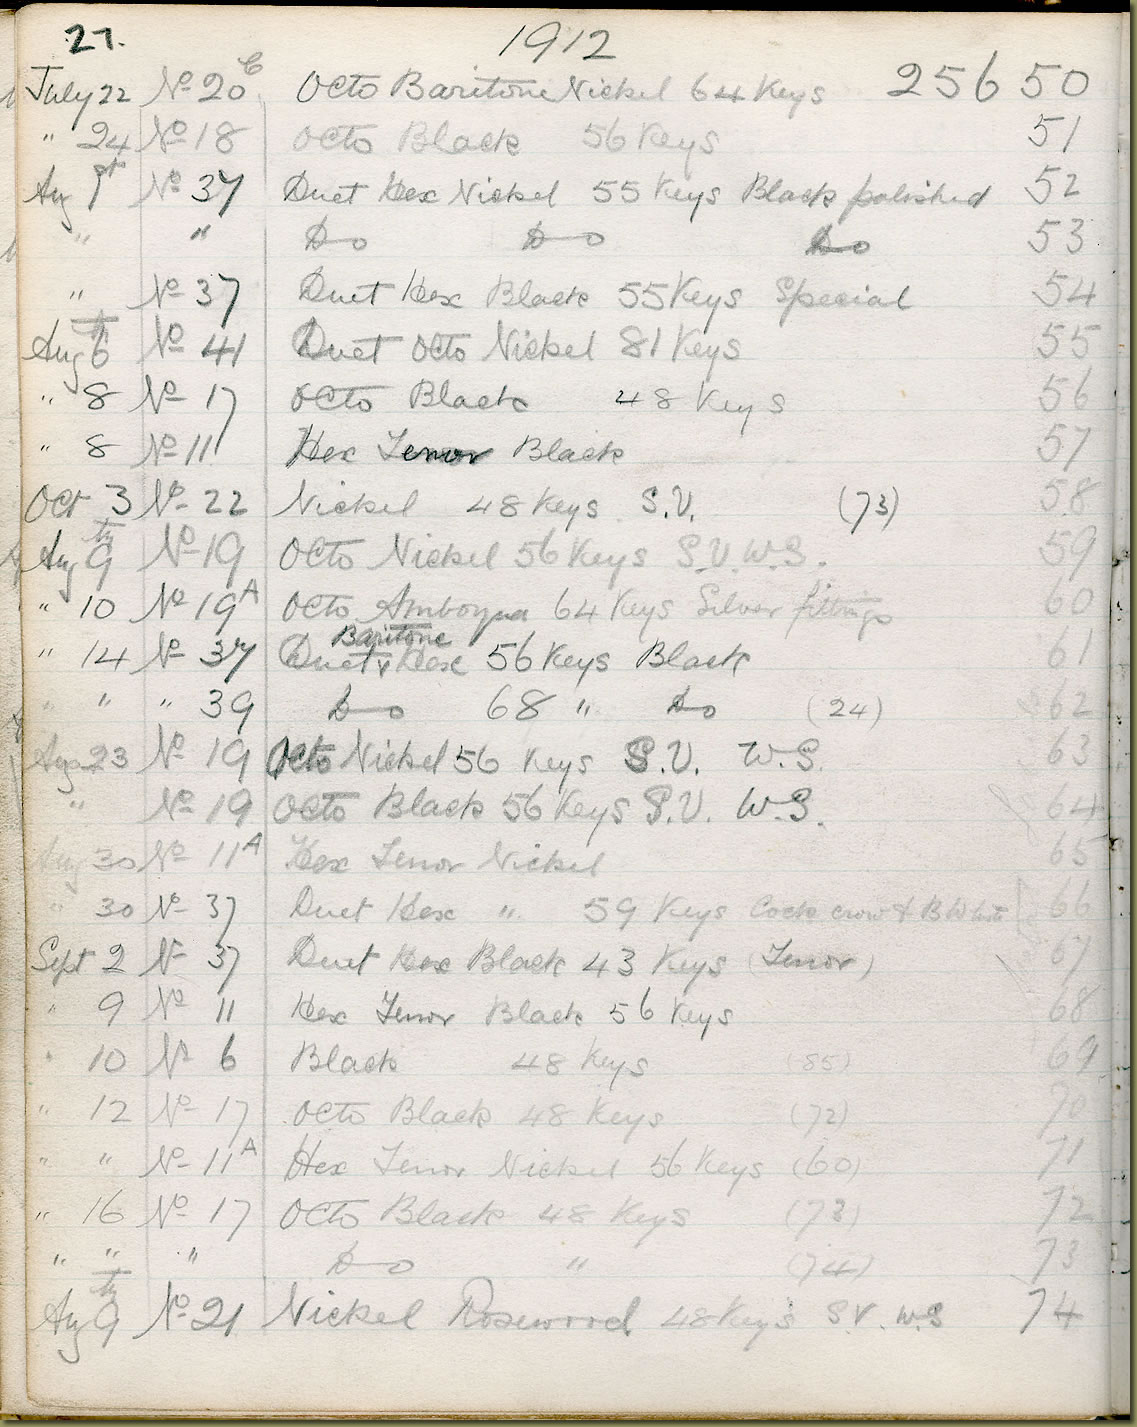 27. 1912
July 22 No 20C Octo Baritone Nickel 64 Keys 25650
" 24 No 18 Octo Black 56 Keys 51
Aug 1st No 37 Duet Hex Nickel 55 Keys Black polished 52
" " Do Do Do 53
" No 37 Duet Hex Black 55 Keys Special 54
Aug 6th No 41 Duet Octo Nickel 81 Keys 55
" 8 No 17 Octo Black 48 Keys 56
" 8 No 11 Hex Tenor Black 57
Oct 3 No 22 Nickel 48 Keys S.V. (73) 58
Aug 9th No 19 Octo Nickel 56 Keys S.V. W.S. 59
" 10 No 19A Octo Amboyna 64 Keys Silver fittings 60
Baritone
" 14 No 37 Duet Hex 56 Keys Black 61
" " " 39 Do 68 " Do (24) 62
Aug 23 No 19 Octo Nickel 56 Keys S.V. W.S. 63
" No 19 Octo Black 56 Keys S.V. W.S. 64
Aug 30 No 11A Hex Tenor Nickel 65
" 30 No 37 Duet Hex " 59 Keys Cock crow & B Whistle 66
Sept 2 No 37 Duet Hex Black 43 Keys (Tenor) 67
" 9 No 11 Hex Tenor Black 56 Keys 68
" 10 No 6 Black 48 Keys (85) 69
" 12 No 17 Octo Black 48 Keys (72) 70
" " No 11A Hex Tenor Nickel 56 Keys (60) 71
" 16 No 17 Octo Black 48 Keys (73) 72
" " " Do " (74) 73
Aug 9th No 21 Nickel Rosewood 48 Keys S.V. W.S 74